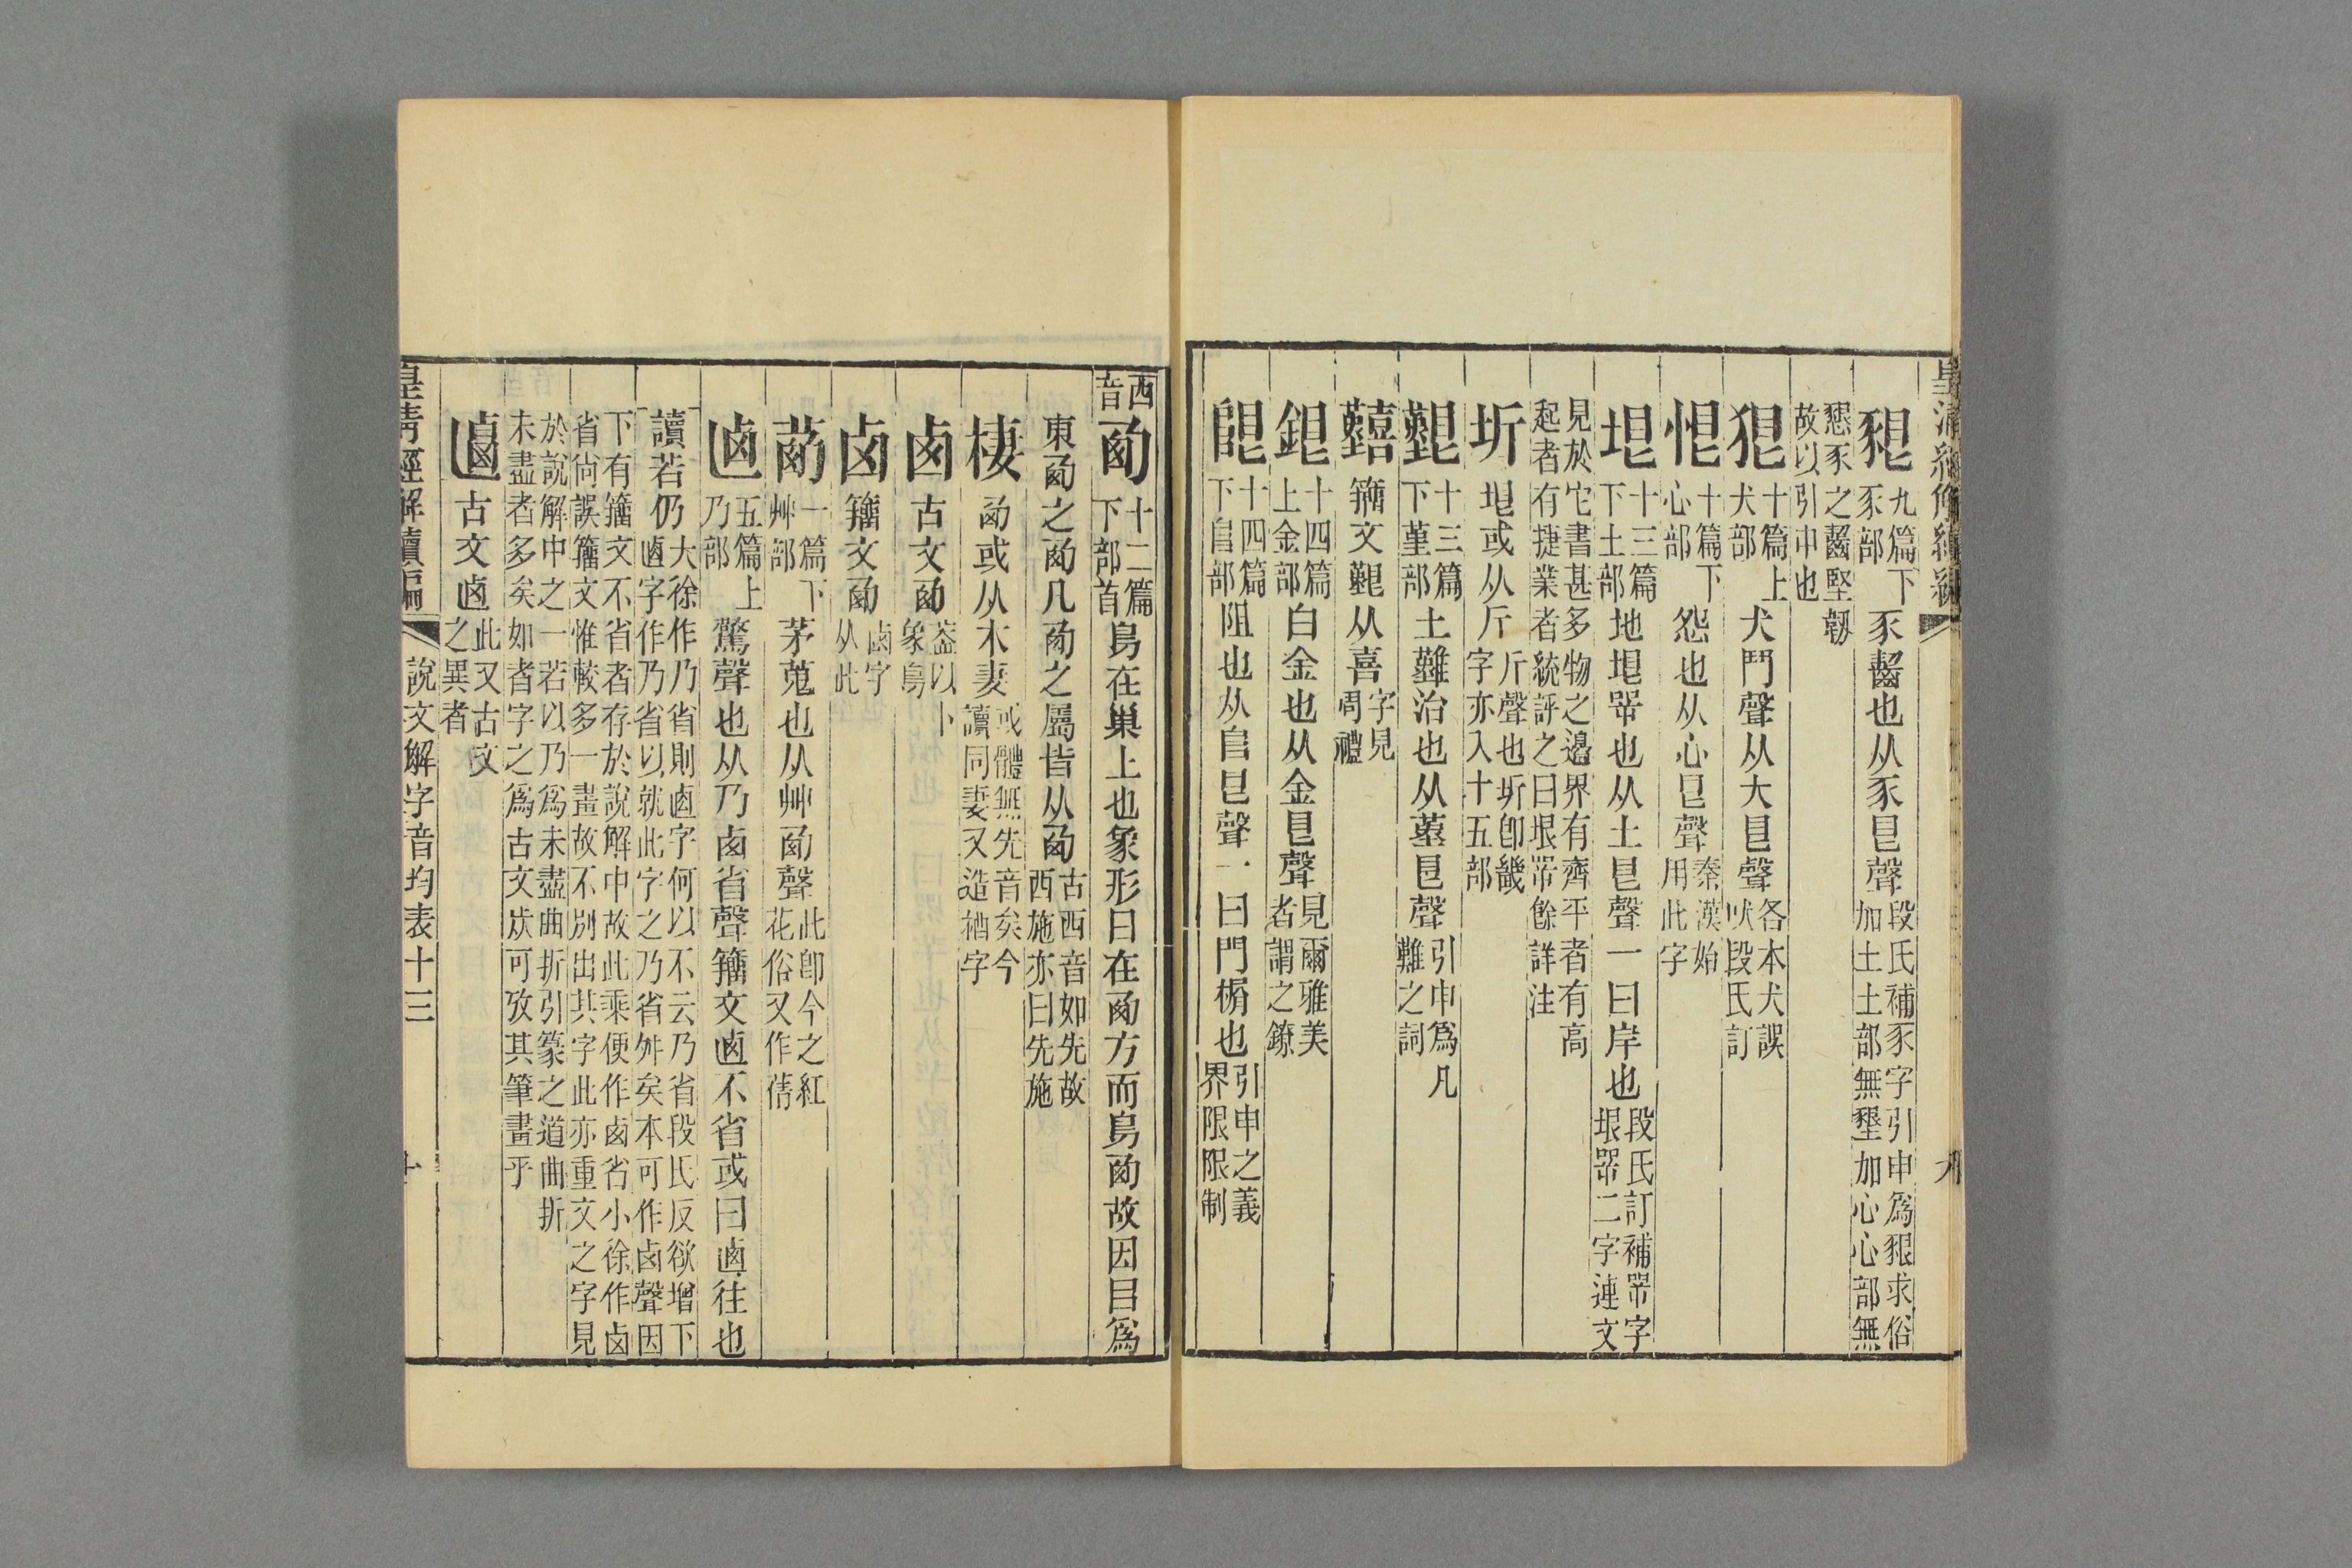 豤 九篇下豕部 豕齧也从豕㫐聲 段氏補豕字引申爲豤求俗加土土部無墾加心心部無
懇豕之齧堅韧故以引申也
㹞 十篇上犬部 犬鬥聲从犬㫐聲 各本犬誤吠段氏訂
恨 十篇下心部 怨也从心㫐聲 秦漢始用此字
垠 十三篇下土部 地垠咢也从土㫐聲一曰岸也 段氏訂補咢字垠咢二字連文
見於它書甚多物之邊界有齊平者有高起者有捷業者統評之曰垠咢餘詳注
圻 垠或从斤 斤聲也圻卽畿字亦入十五部
艱 十三篇下堇部 土難治也从堇㫐聲 引申爲凡難之詞
囏 籒文艱从喜 字見周禮
銀 十四篇上金部 白金也从金㫐聲 見爾雅美者謂之鐐
限 十四篇下𨸏部 阻也从𨸏㫐聲一曰門榍也 引申之義界限限制
西音
㢴 十二篇下部首 鳥在巢上也象形日在㢴方而鳥㢴故因目爲
東㢴之㢴凡㢴之屬皆从㢴 古西音如先故西施亦曰先施
棲 㢴或从木妻 或體無先音矣今讀同妻又造栖字
卥 古文㢴 葢以卜象鳥
卤 籒文㢴 卤字从此
茜 一篇下艸部 茅蒐也从艸㢴聲 此卽今之紅花俗又作蒨
𠧟 五篇上乃部 驚聲也从乃卥省聲籒文𠧟不省或曰𠧟往也
讀若仍 大徐作乃省則𠧟字何以不云乃省段氏反欲增下𠧟字作乃省以就此字之乃省舛矣本可作卤聲因
下有籒文不省者存於說解中故此乘便作卥省小徐作卤省尙誤籒文惟較多一畫故不別出其字此亦重文之字見
於說解中之一若以乃爲未盡曲折引篆之道曲折未盡者多矣如者字之爲古文㡯可攷其筆畫乎
𠧤 古文𠧟 此又古文之異者
皇清經解續編 說文解字音均表十三 十